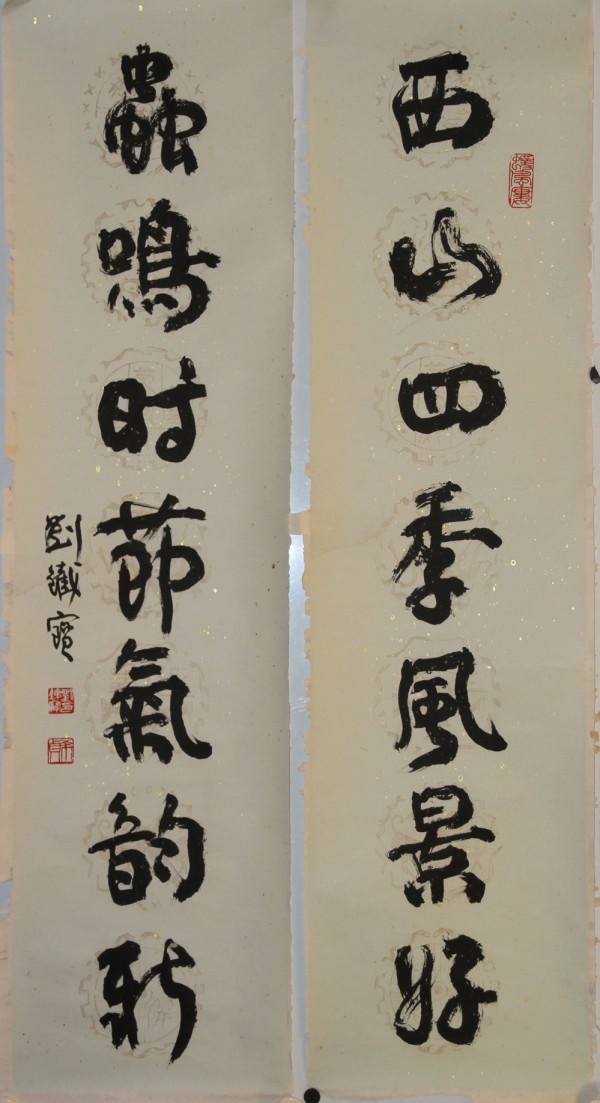 西山四季風景好
蟲鳴时節氣韵新
劉鐵寶